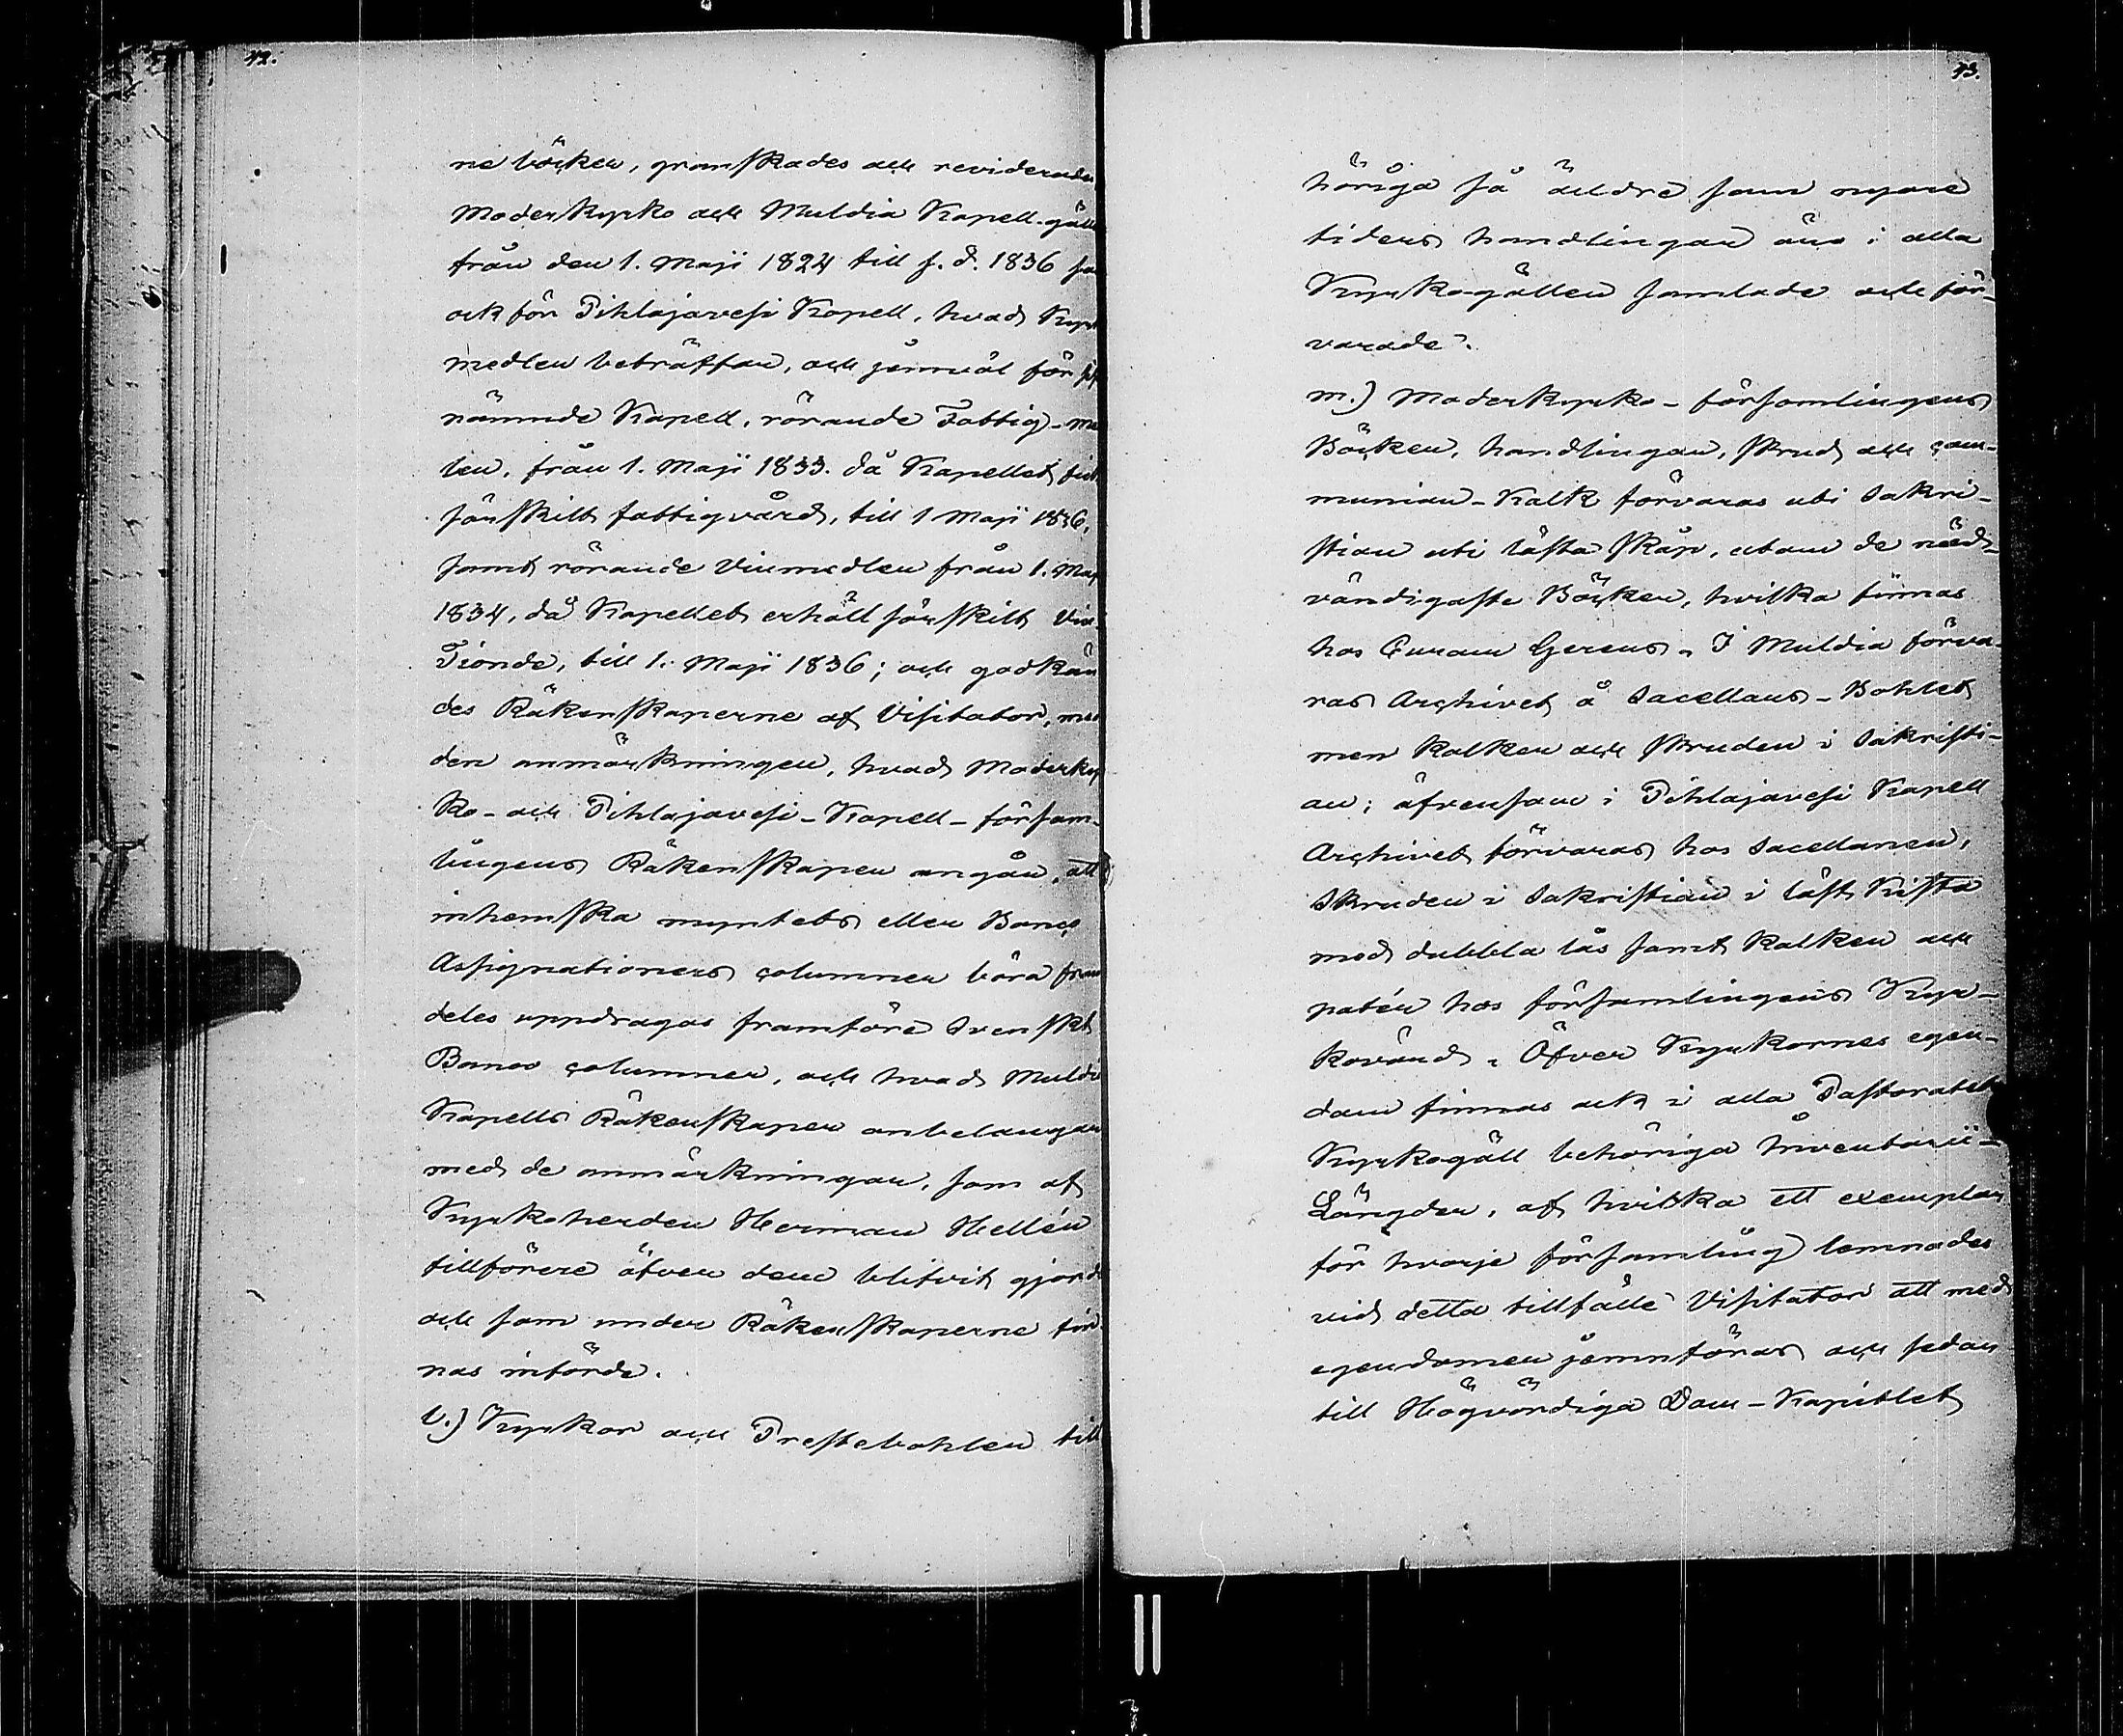 42.
ne böcker, granskades och reviderades
Moderkyrko och Muldia Kapell-gäll
från den 1. Maji 1824 till s. d. 1836 sa
ock för Pihlajavesi Kapell, hvad Kyrk
medlen beträffar, och jemnväl för sist
nämnde Kapell, rörande Fattig-me
len, från 1. Maji 1833. då Kapellet fick
särskilt fattigvård, till 1 Maji 1836,
samt rörande Vinmedlen från 1. Maj
1834, då Kapellet erhöll särskilt Vin-
Tionde, till 1. Maji 1836; och godkän
des Räkenskaperne af Visitator, med
den anmärkningen, hvad Moderkyr
ko- och Pihlajavesi-Kapell-försam-
lingens Räkenskaper angår, att
inhemska myntets eller Banco
Assignationers columner böra fram
deles uppdragas framföre Svenskt
Banco columner, och hvad Muldia
Kapells Räkenskaper anbelangar
med de anmärkningar, som af
Kyrkoherden Herman Hellén
tillförene öfver dem blifvit gjorde
och som under Räkenskaperne fin-
nas införde.
l.) Kyrkor och Prestebohlen till
43.
höriga så äldre som nyare
tiders handlingar äro i alla
Kyrkogällen samlade och för-
varade.
m.) Moderkyrko-församlingens
Böcker, handlingar, skrud och com-
munion-Kalk förvaras uti Sakri-
stian uti låsta skåp, utom de nöd-
vändigaste Böcker, hvilka finnas
hos Curam Gerens. I Muldia förva-
ras Archivet å Sacellans-Bohlet
men kalken och skruden i Sakristi-
an; äfvensom i Pihlajavesi Kapell
Archivet förvaras hos Sacellanen,
Skruden i Sakristian i låst Kista
med dubbla lås samt Kalken och
patén hos församlingens Kyr-
kovärd. Öfver Kyrkornes egen-
dom finnas ock i alla Pastoratets
Kyrkogäll behöriga Inventarii-
Längder, af hvilka ett exemplar
för hvarje församling lemnades
vid detta tillfälle Visitator att med
egendomen jemnföras och sedan
till Högvördiga Dom-Kapitlet